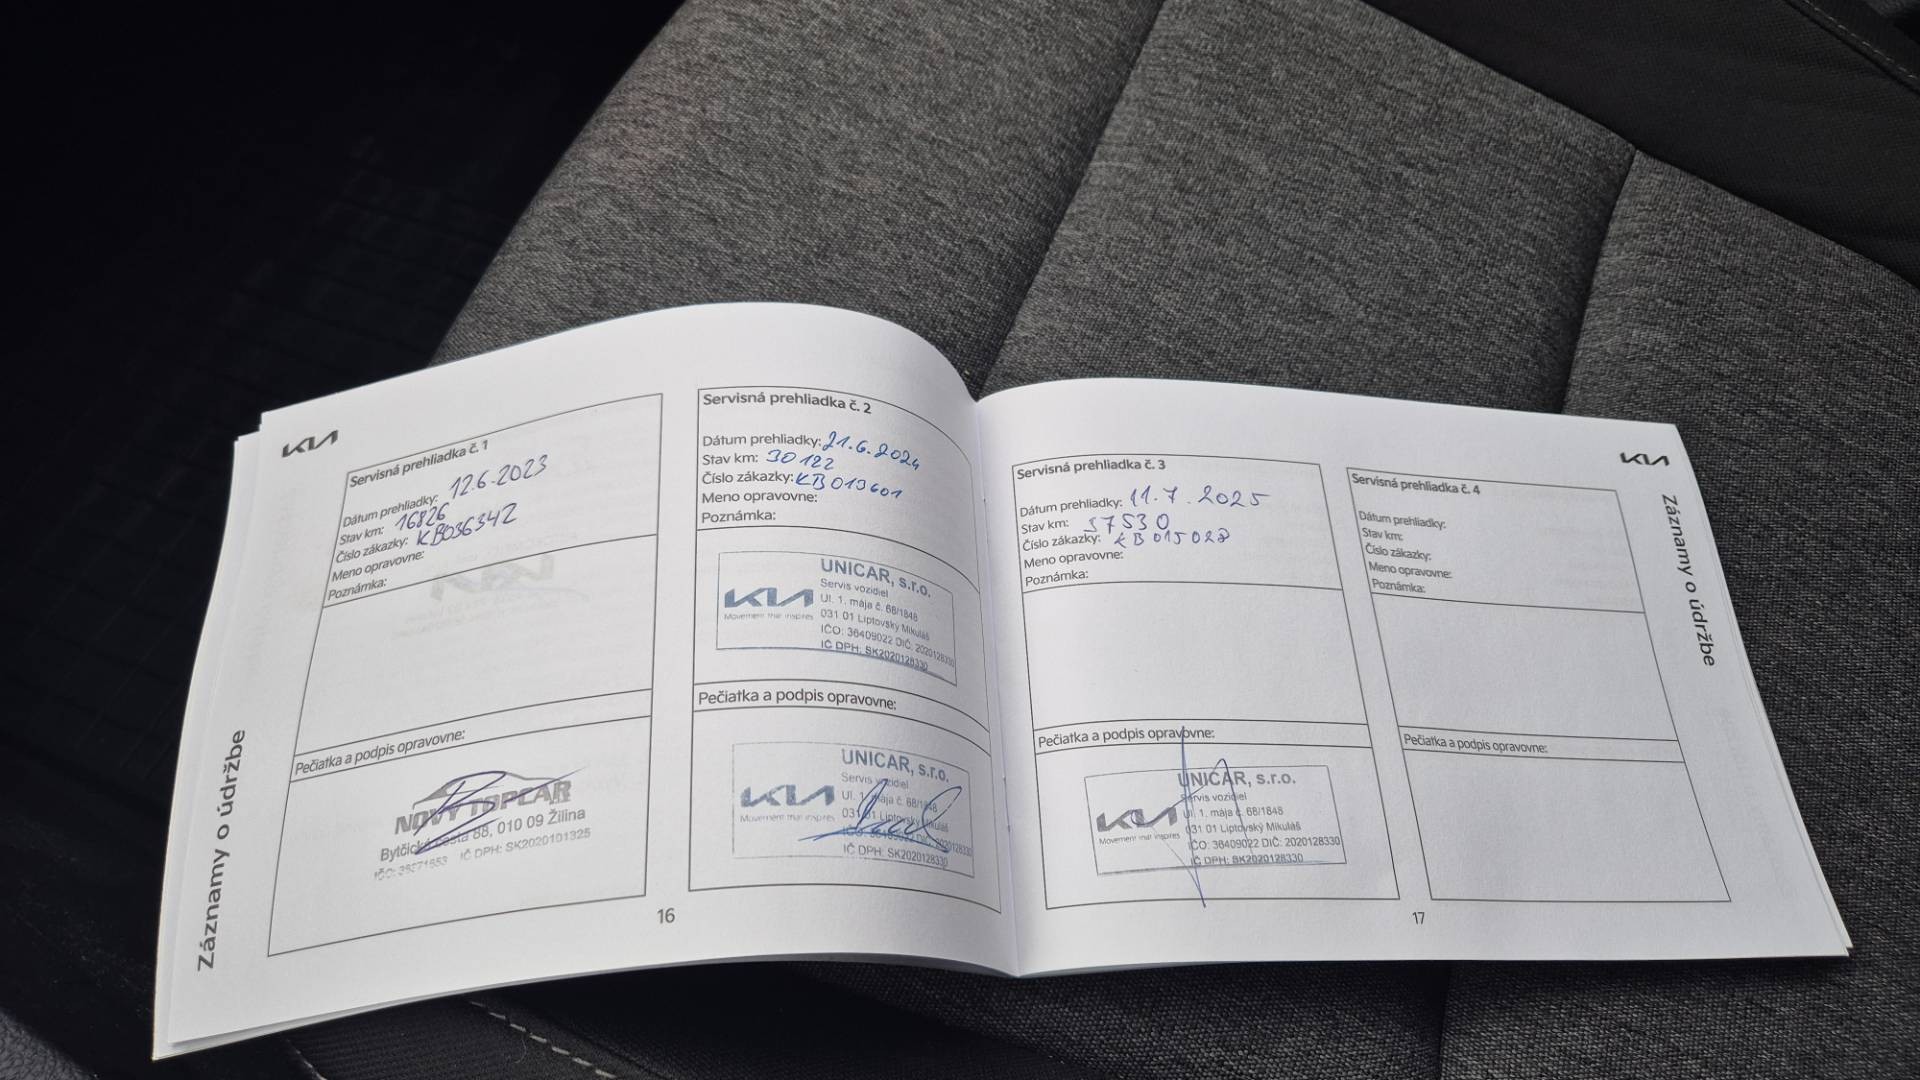 KIA
Záznamy o údržbe
Servisná prehliadka č. 1
Dátum prehliadky: 12.6.2023
Stav km: 16826
Číslo zákazky: KB036342
Meno opravovne:
Poznámka:
Pečiatka a podpis opravovne:
NOVÝ TOPCAR
Bytčická cesta 88, 010 09 Žilina
IČ DPH: SK2020101325
Servisná prehliadka č. 2
Dátum prehliadky: 21.6.2024
Stav km: 30122
Číslo zákazky: KB013601
Meno opravovne:
Poznámka:
KIA
Movement that inspires
UNICAR, s.r.o.
Servis vozidiel
Ul. 1. mája č. 68/1848
031 01 Liptovský Mikuláš
IČO: 36409022 DIČ: 2020128330
IČ DPH: SK2020128330
Pečiatka a podpis opravovne:
KIA
Movement that inspires
UNICAR, s.r.o.
Servis vozidiel
Ul. 1. mája č. 68/1848
031 01 Liptovský Mikuláš
IČO: 36409022 DIČ: 2020128330
IČ DPH: SK2020128330
16
Servisná prehliadka č. 3
Dátum prehliadky: 11.7.2025
Stav km: 37530
Číslo zákazky: KB015028
Meno opravovne:
Poznámka:
Pečiatka a podpis opravovne:
KIA
Movement that inspires
UNICAR, s.r.o.
Servis vozidiel
Ul. 1. mája č. 68/1848
031 01 Liptovský Mikuláš
IČO: 36409022 DIČ: 2020128330
IČ DPH: SK2020128330
Servisná prehliadka č. 4
Dátum prehliadky:
Stav km:
Číslo zákazky:
Meno opravovne:
Poznámka:
Pečiatka a podpis opravovne:
17
KIA
Záznamy o údržbe